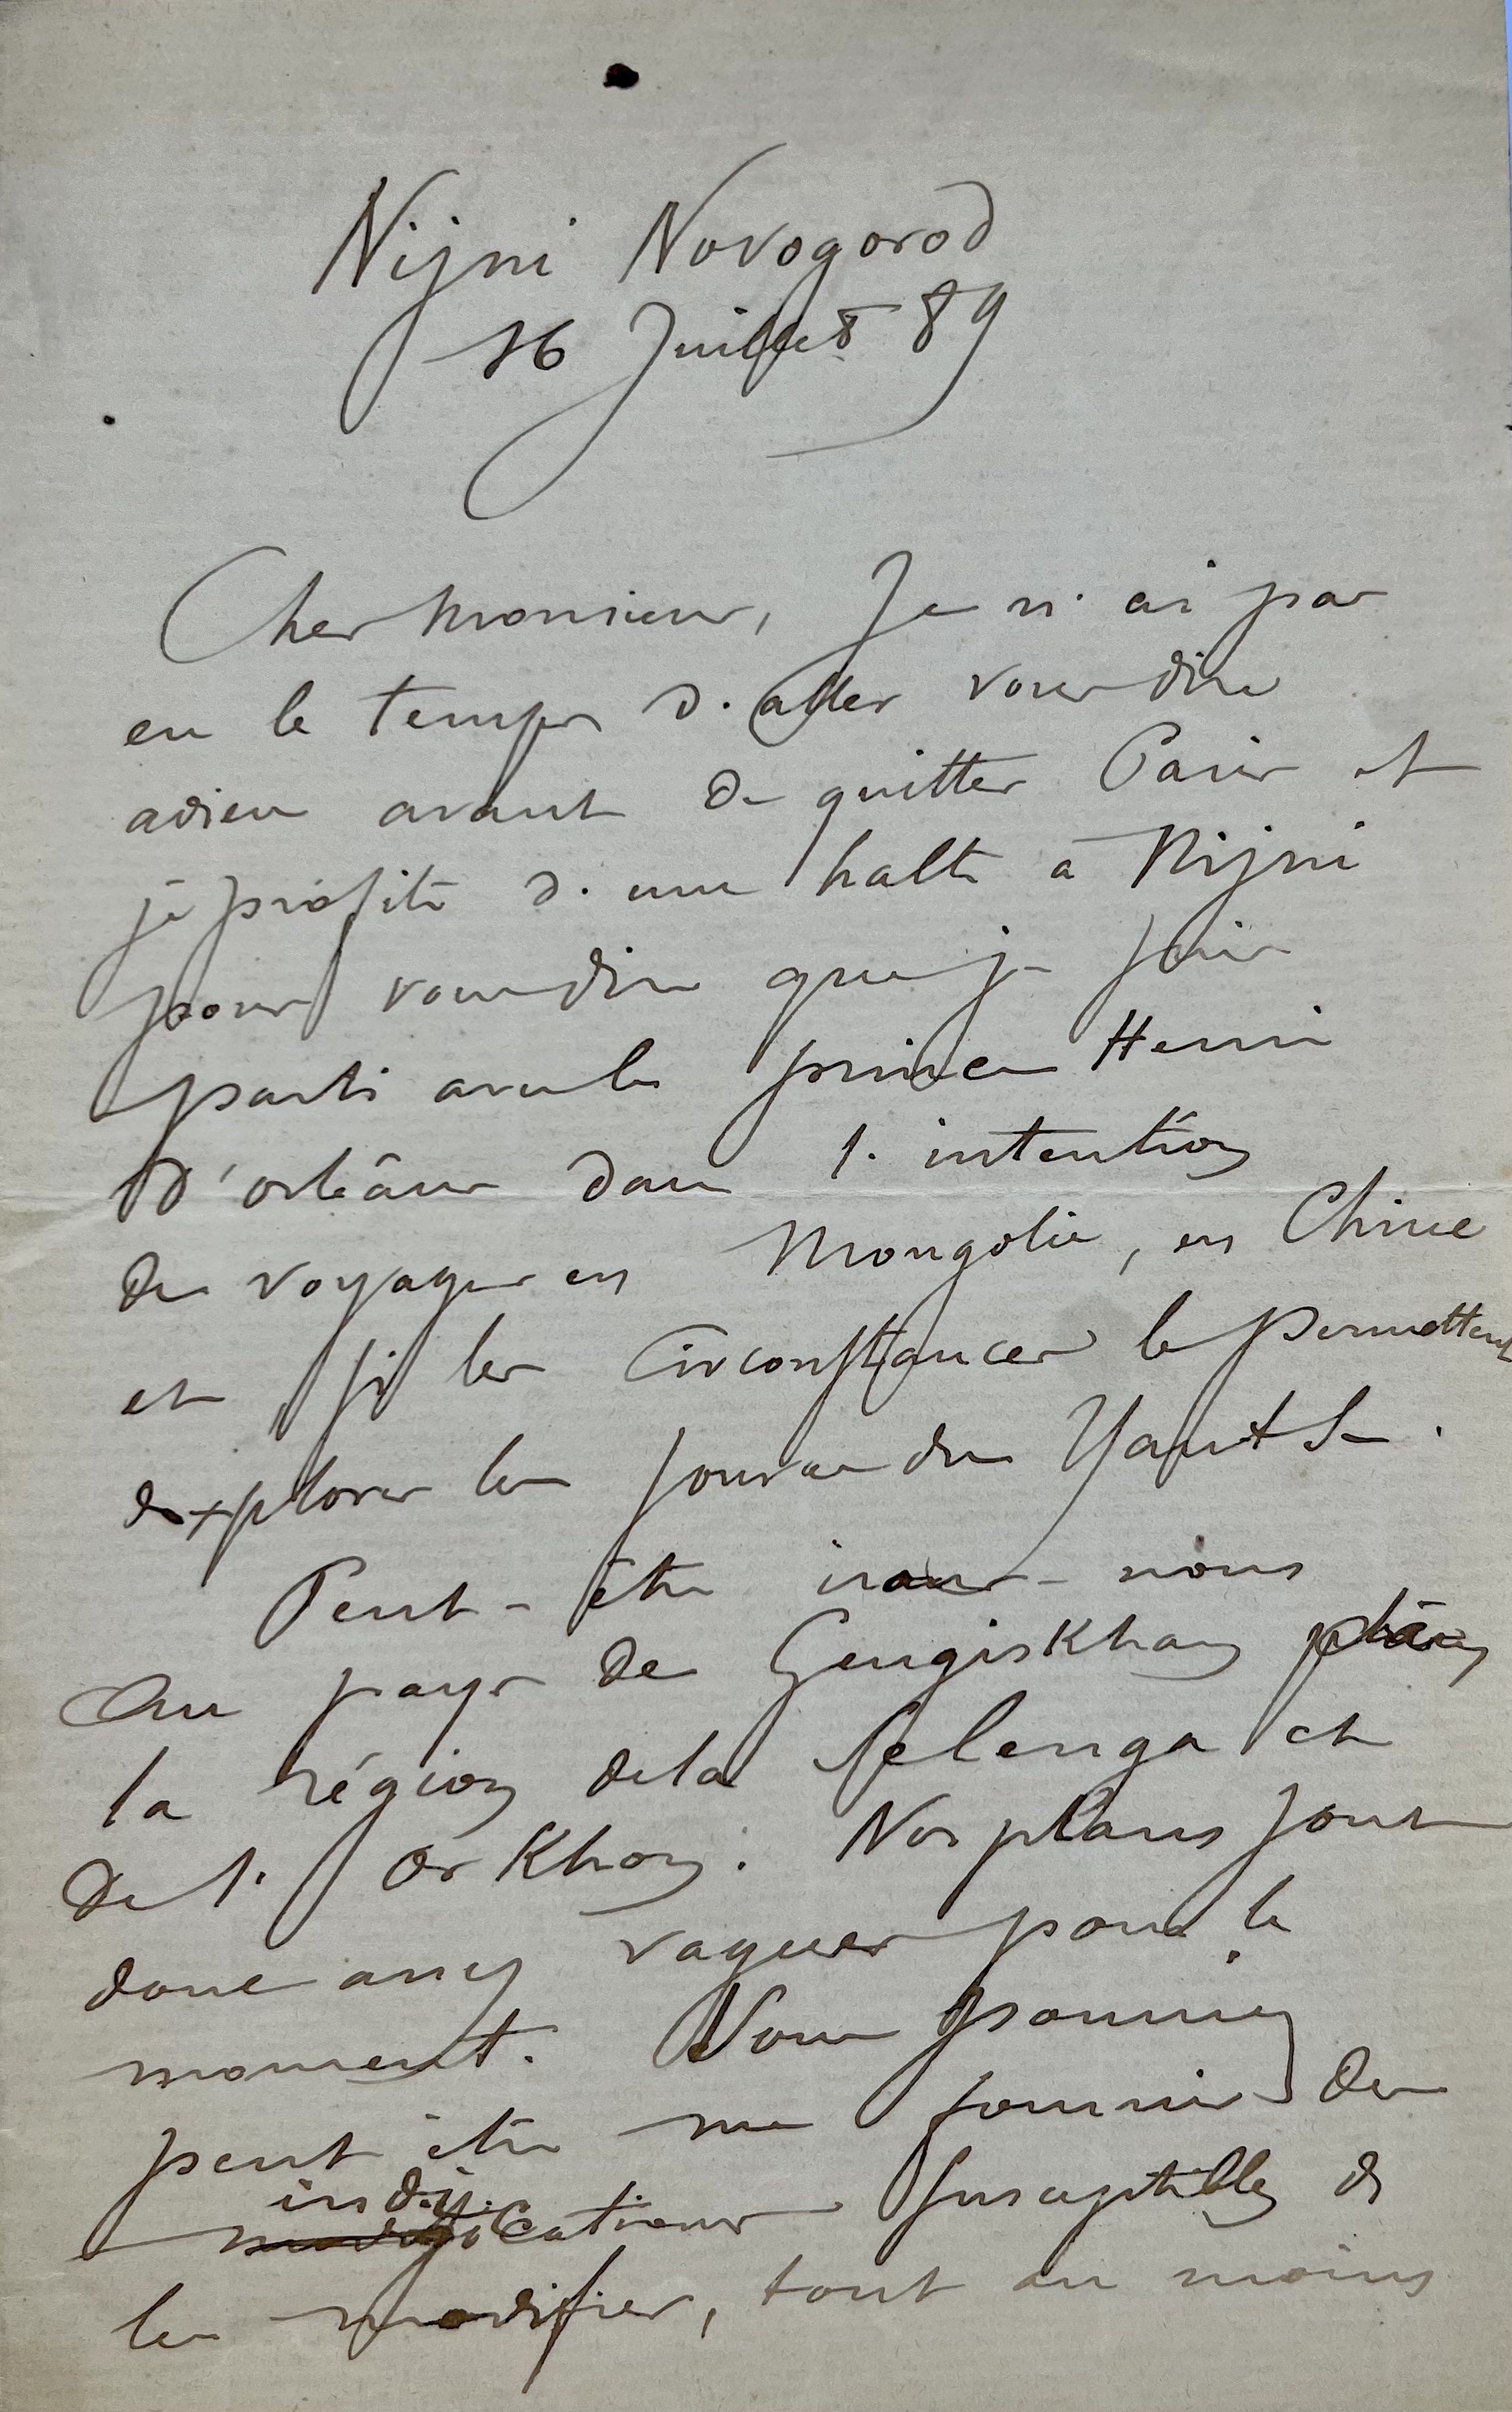 Nijni Novogorod
16 Juillet 89
Cher Monsieur, Je n'ai pas
eu le temps d'aller vous dire
adieu avant de quitter Paris et
je profite d'une halte à Nijni
pour vous dire que je suis
parti avec le prince Henri
d'Orléans dans l'intention
de voyager en Mongolie, en Chine
et si les circonstances le permettent
d'explorer les sources du Yantse.
Peut-être irons-nous
au pays de Gengiskhan dans
la région de la Selenga et
de l'Orkhon. Nos plans sont
donc assez vagues pour le
moment. Vous pourriez
peut être me fournir des
indications susceptibles de
les modifier, tout au moins